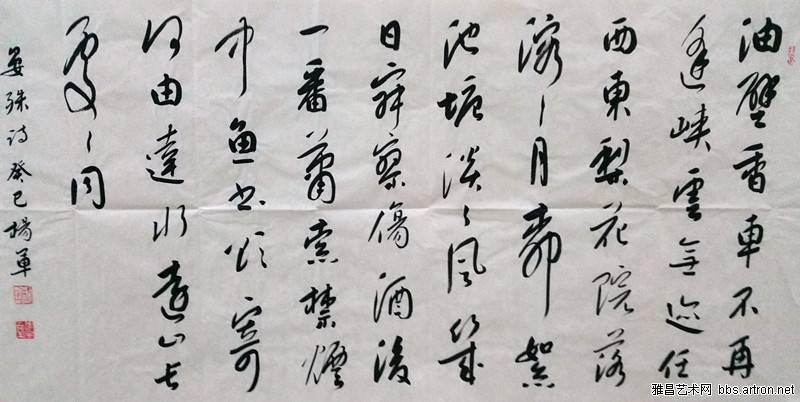 油壁香車不再
逢峡雲無迹任
西東梨花院落
溶々月柳絮
池塘淡々風幾
日寂寥傷酒後
一番蕭索禁煙
中魚書欲寄
何由達水遠山長
處々同
晏殊詩 癸巳 楊軍
雅昌艺术网 bbs.artron.net